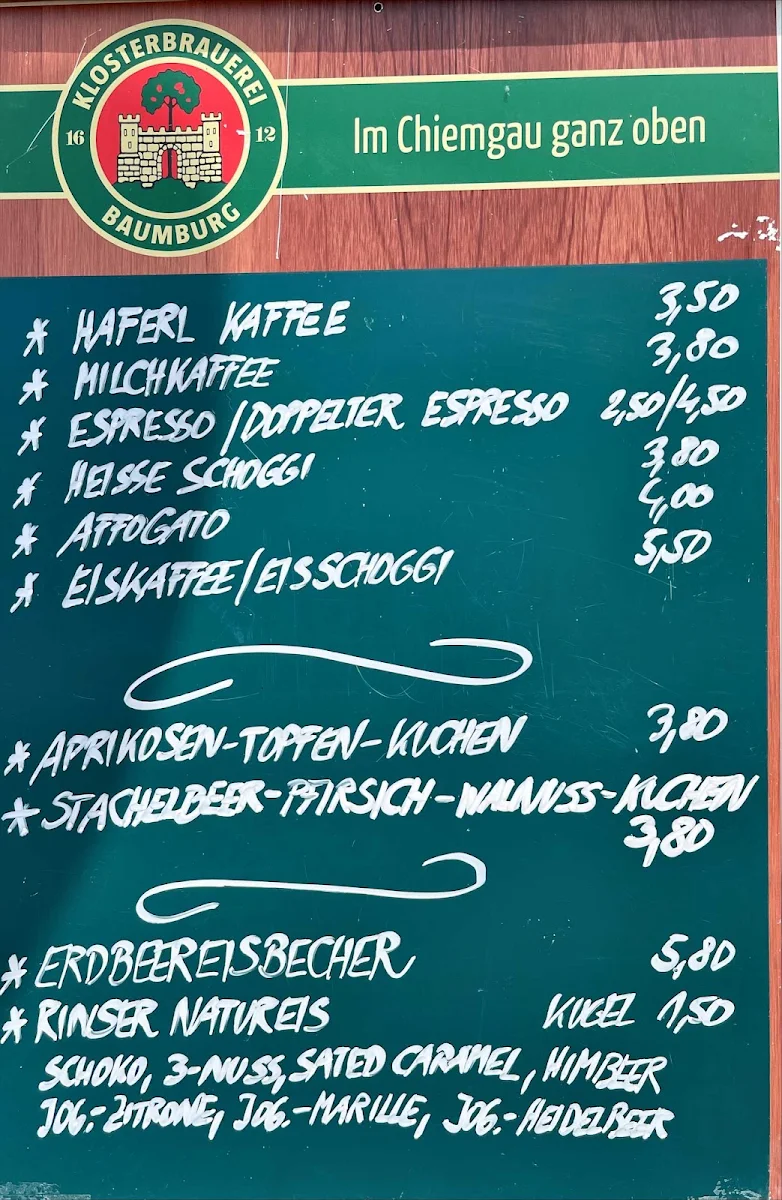 KLOSTERBRAUEREI
16 12
BAUMBURG
Im Chiemgau ganz oben
* HAFERL KAFFEE 3,50
* MILCHKAFFEE 3,80
* ESPRESSO/DOPPELTER ESPRESSO 2,50/4,50
* HEISSE SCHOGGI 3,80
* AFFOGATO 4,00
* EISKAFFEE/EISSCHOGGI 5,50
* APRIKOSEN-TOPFEN-KUCHEN 3,80
* STACHELBEER-PFIRSICH-WALNUSS-KUCHEN
3,80
* ERDBEEREISBECHER 5,80
* RINSER NATUREIS KUGEL 1,50
SCHOKO, 3-NUSS, SATED CARAMEL, HIMBEER
JOG.-ZITRONE, JOG.-MARILLE, JOG.-HEIDELBEER